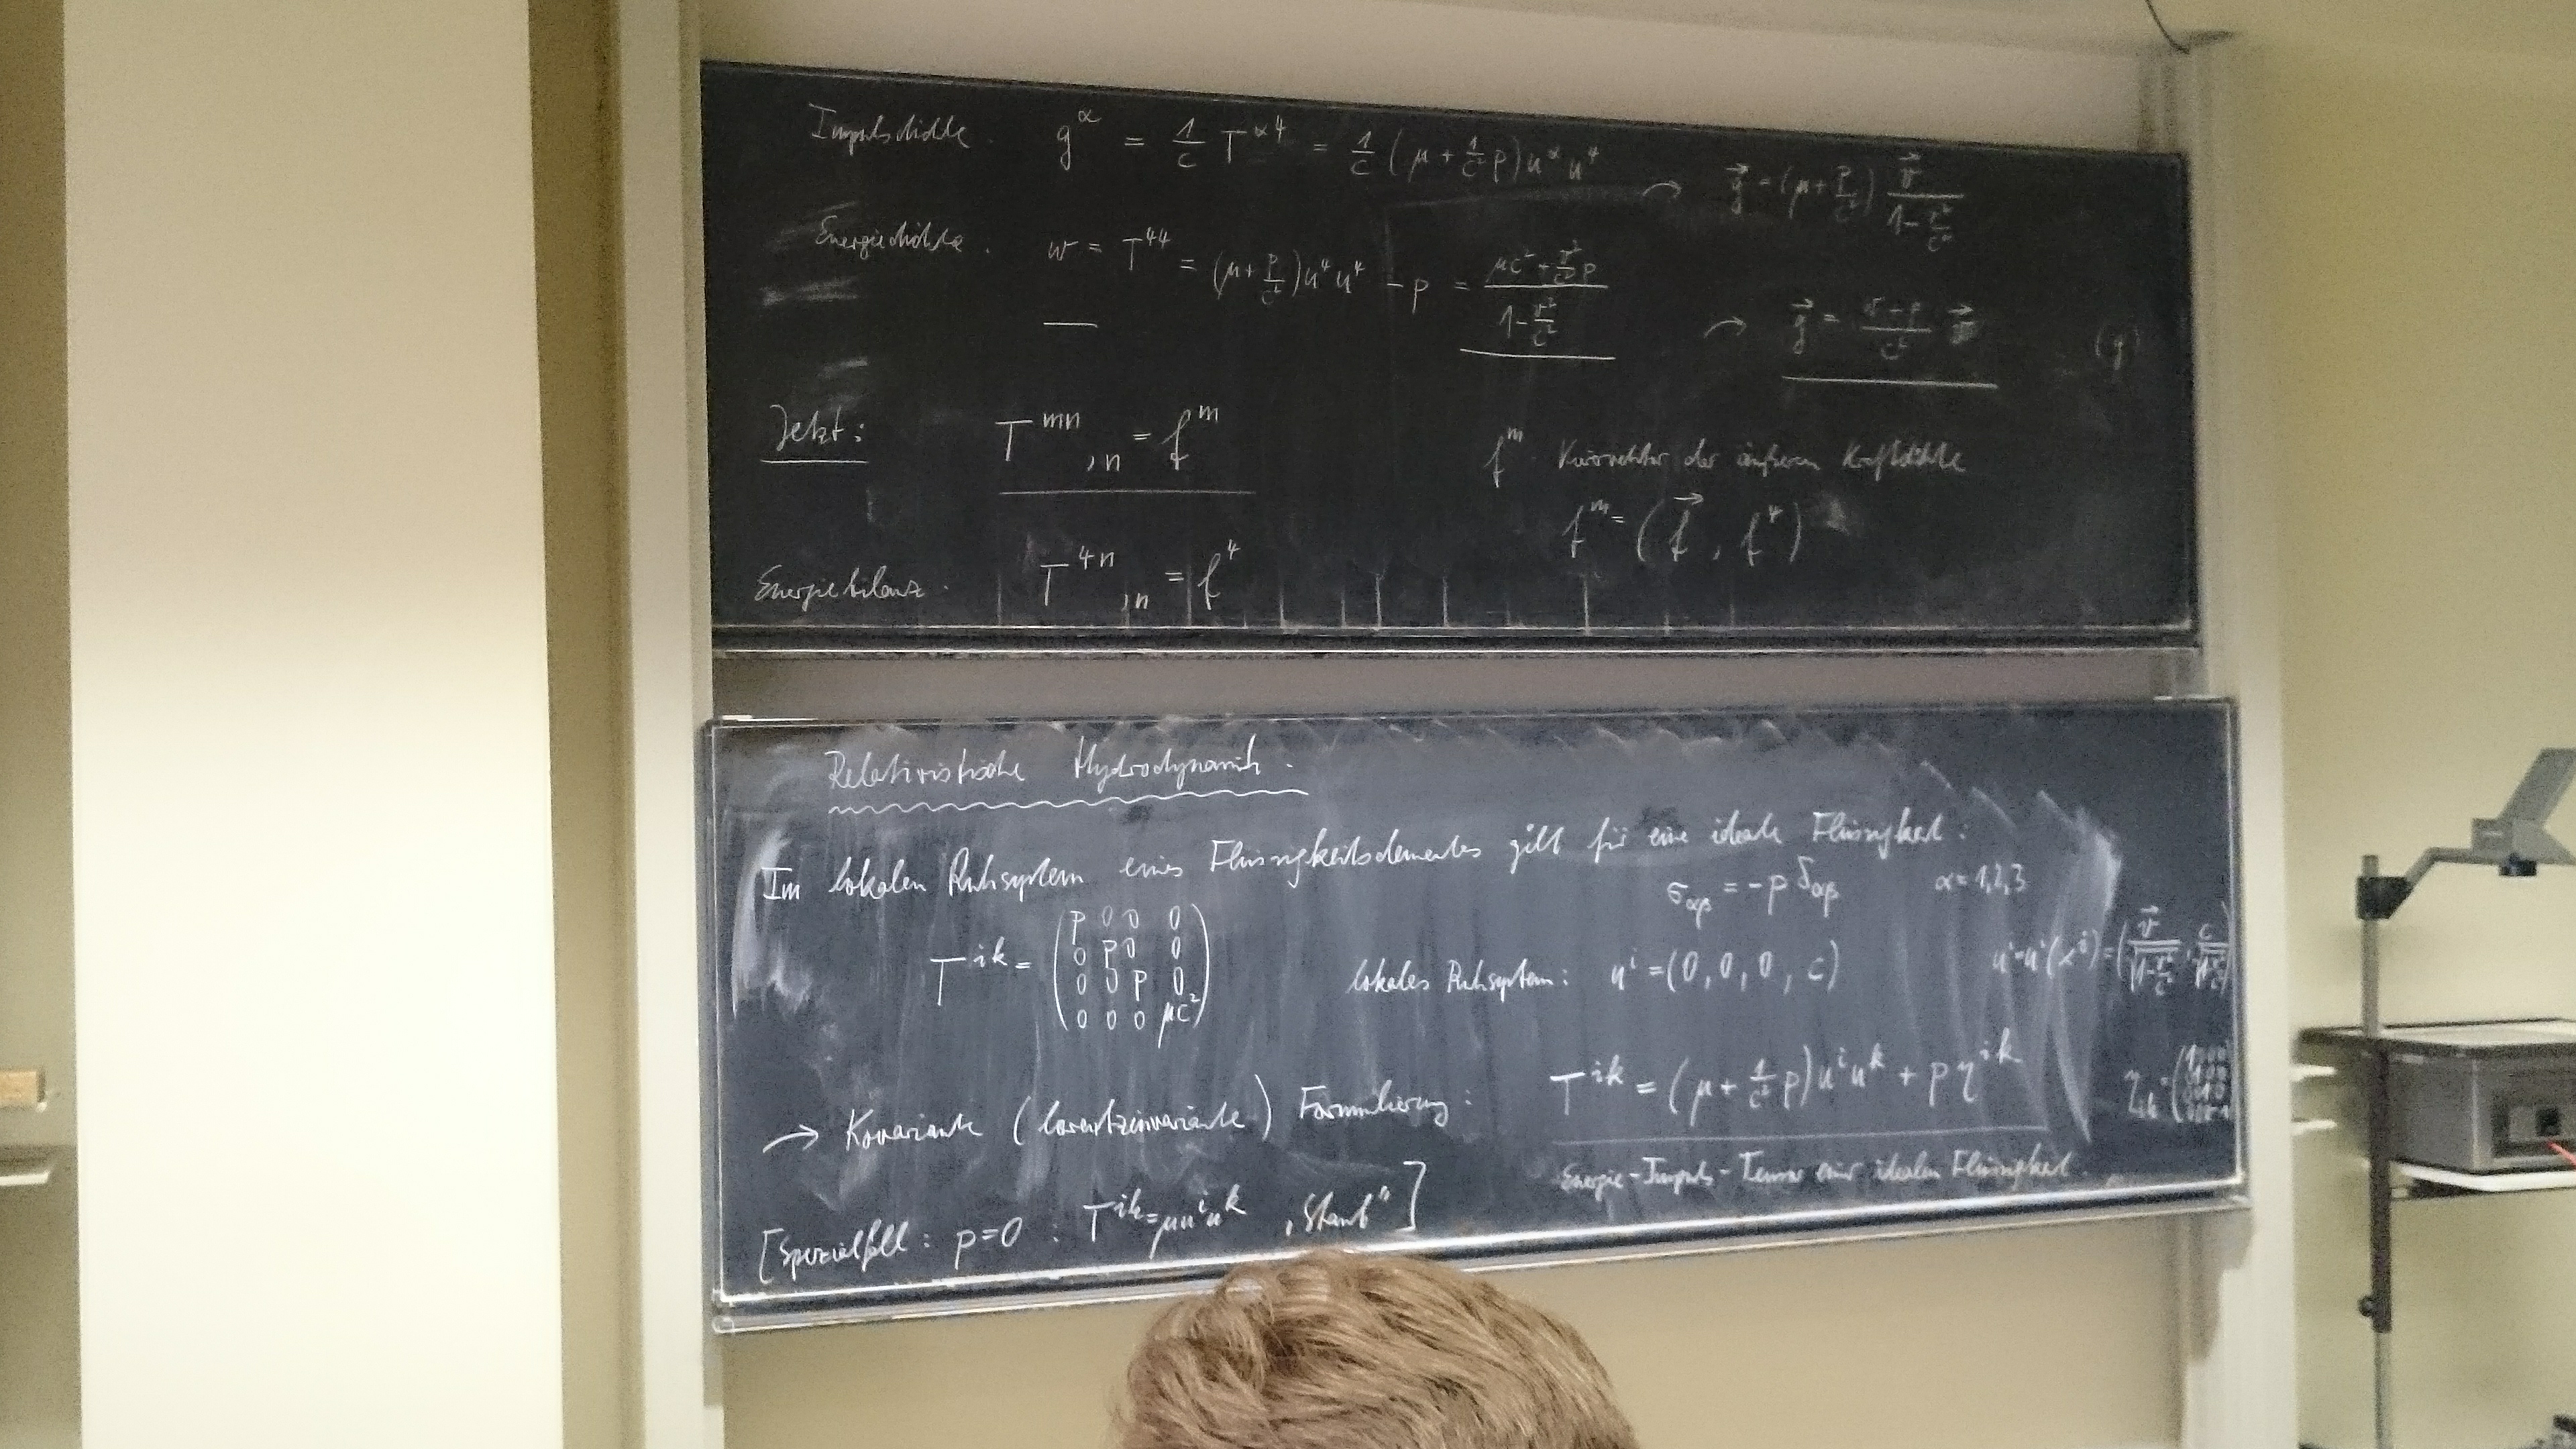 Impulsdichte. g^α = 1/c T^{α4} = 1/c (μ + 1/c² p) u^α u^4
↷ g⃗ = (μ + p/c²) v⃗ / (1 - v²/c²)
Energiedichte. w = T^{44} = (μ + p/c²) u^4 u^4 - p = (μc² + v²/c² p) / (1 - v²/c²)
↷ g⃗ = / c² v⃗
Jetzt: T^{mn}_{,n} = f^m
f^m. Vierervektor der äußeren Kraftdichte
f^m = (f⃗, f^4)
Energiebilanz. T^{4n}_{,n} = f^4
Relativistische Hydrodynamik.
Im lokalen Ruhsystem eines Flüssigkeitselementes gilt für eine ideale Flüssigkeit:
σ_{αβ} = -p δ_{αβ} α = 1,2,3
T^{ik} = (p 0 0 0
0 p 0 0
0 0 p 0
0 0 0 μc²)
lokales Ruhsystem: u^i = (0, 0, 0, c) u^i = u^i(x^j) = (v⃗/√(1-v²/c²), c/√(1-v²/c²))
→ Kovariante (lorentzinvariante) Formulierung: T^{ik} = (μ + 1/c² p) u^i u^k + p η^{ik}
Energie-Impuls-Tensor einer idealen Flüssigkeit.
[Spezialfall: p=0 : T^{ik} = μu^i u^k „Staub"]